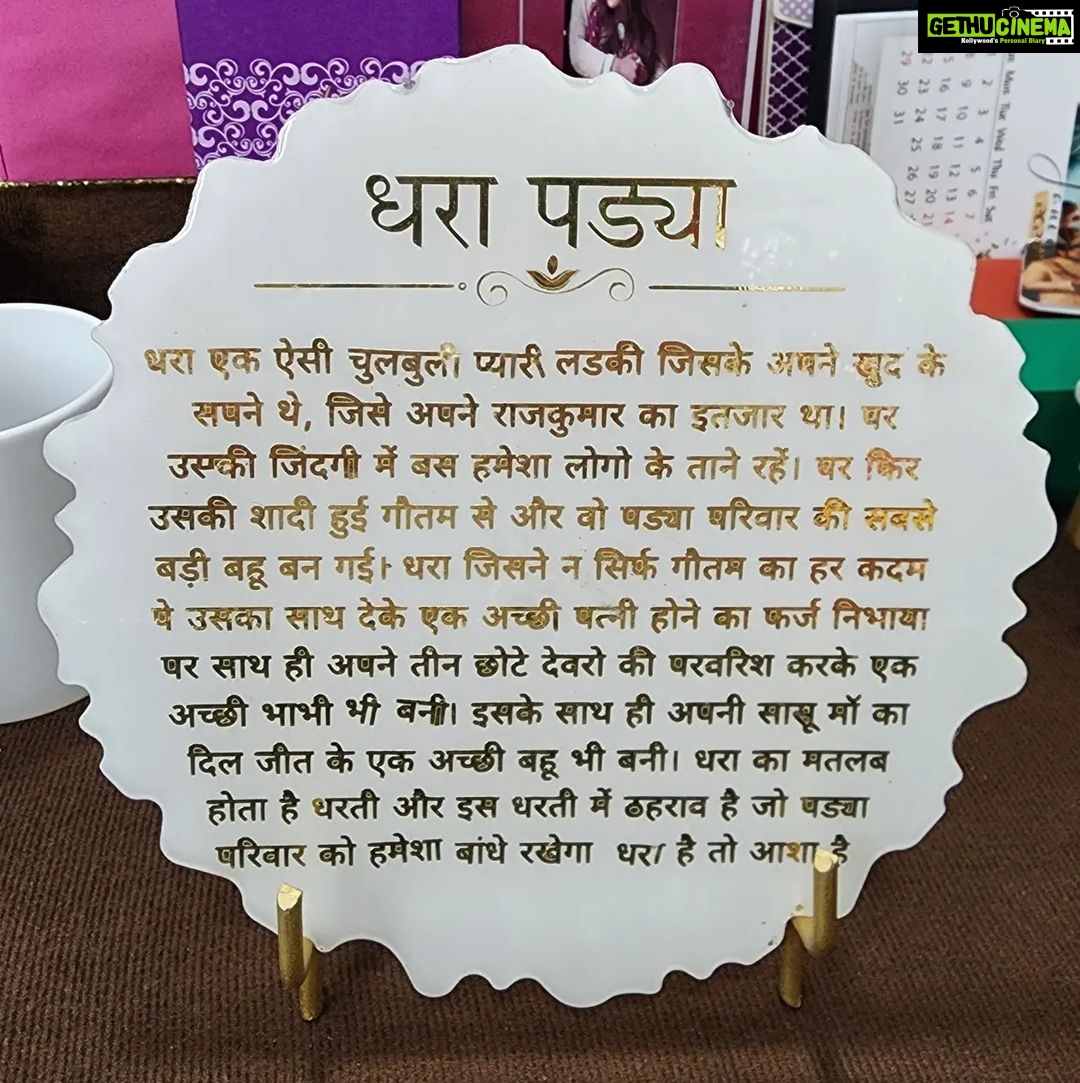 GETHUCINEMA
Kollywood's Personal Diary
धरा पड्या
धरा एक ऐसी चुलबुली प्यारी लडकी जिसके अपने खुद के
सपने थे, जिसे अपने राजकुमार का इतजार था। पर
उसकी जिंदगी में बस हमेशा लोगो के ताने रहें। पर फिर
उसकी शादी हुई गौतम से और वो पड्या परिवार की सबसे
बड़ी बहू बन गई। धरा जिसने न सिर्फ गौतम का हर कदम
पे उसका साथ देके एक अच्छी पत्नी होने का फर्ज निभाया
पर साथ ही अपने तीन छोटे देवरो की परवरिश करके एक
अच्छी भाभी भी बनी। इसके साथ ही अपनी सासू मॉ का
दिल जीत के एक अच्छी बहू भी बनी। धरा का मतलब
होता है धरती और इस धरती में ठहराव है जो पड्या
परिवार को हमेशा बांधे रखेगा धरा है तो आशा है